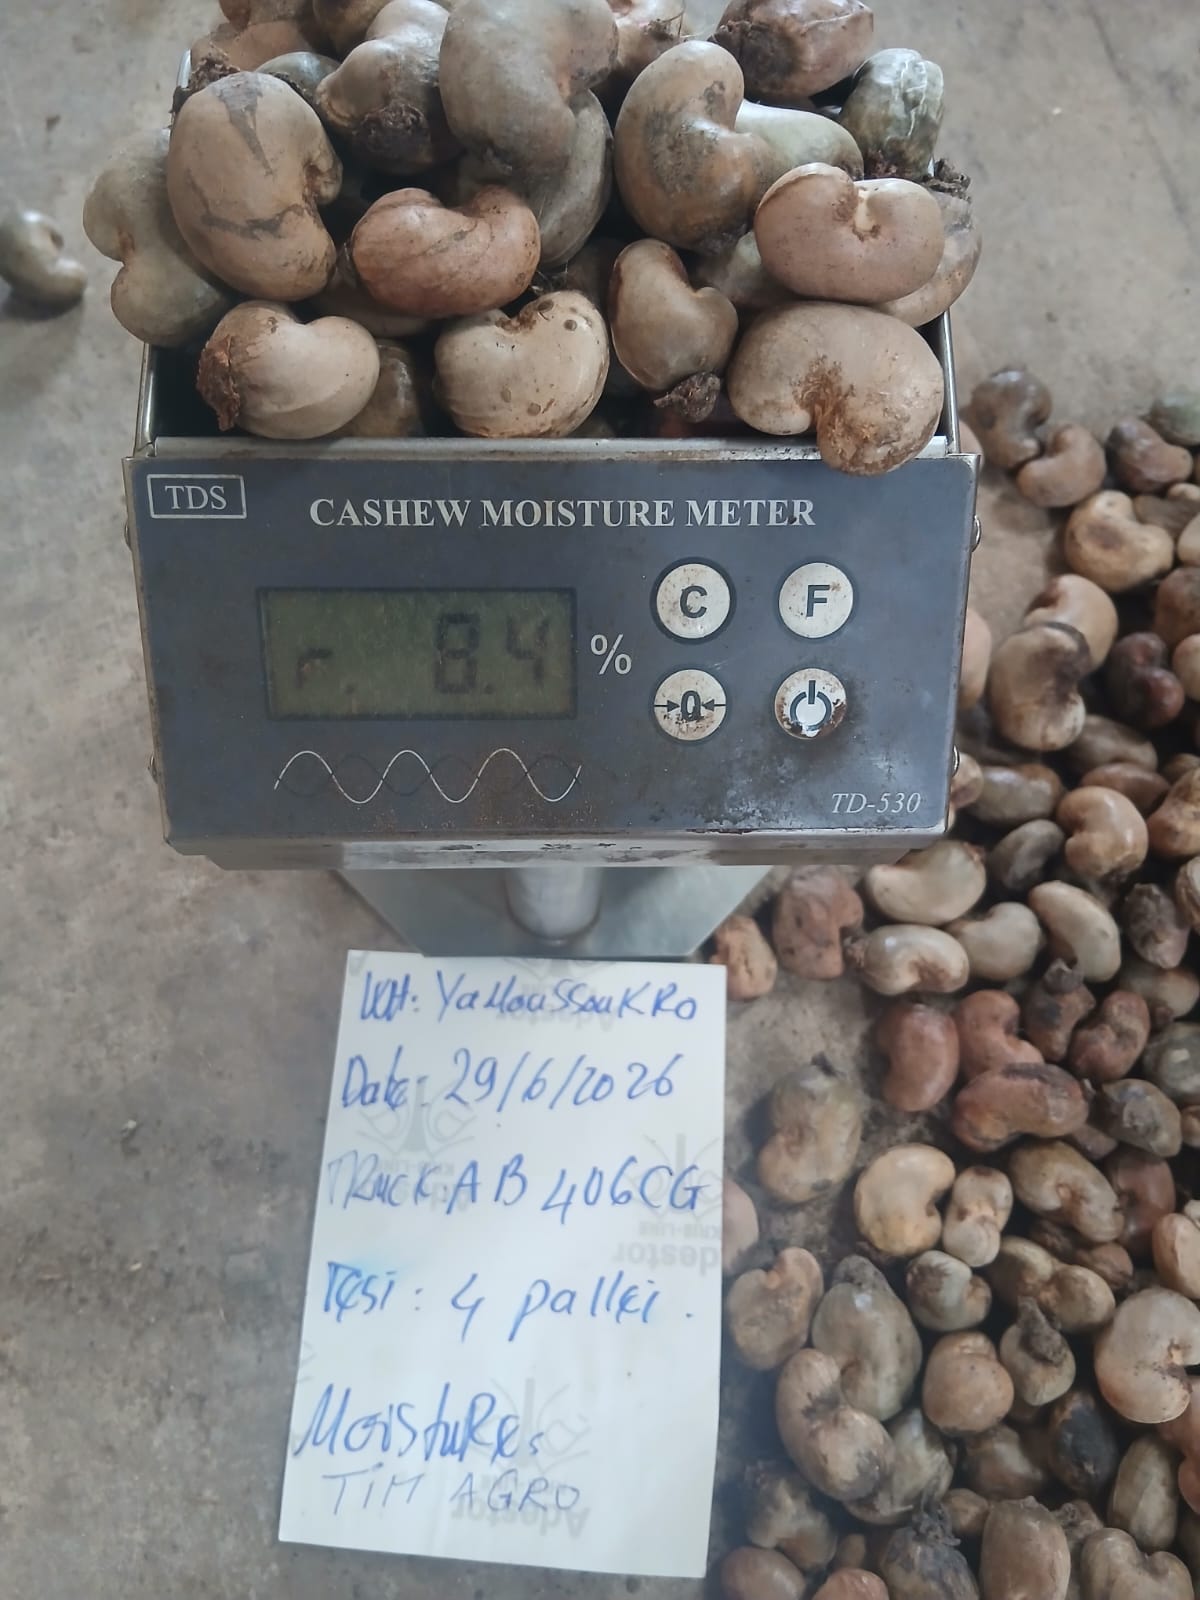 TDS
CASHEW MOISTURE METER
r. 8.4 %
C F
0
TD-530
WH: YaMoussoukRo
Date: 29/6/2026
TRuck: AB 406CG
Test: 4 pallet.
MoistuRe.
TiM AGRO
Adestor
KRIS-LINE